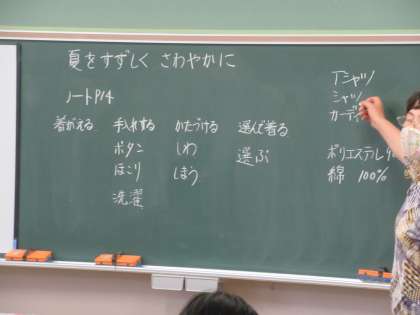 夏をすずしく さわやかに
ノートP14
着がえる 手入れする かたづける 選んで着る
ボタン しわ 選ぶ
ほこり しまう
洗濯
Tシャツ
シャツ
カーディ
ポリエステル
綿 100%